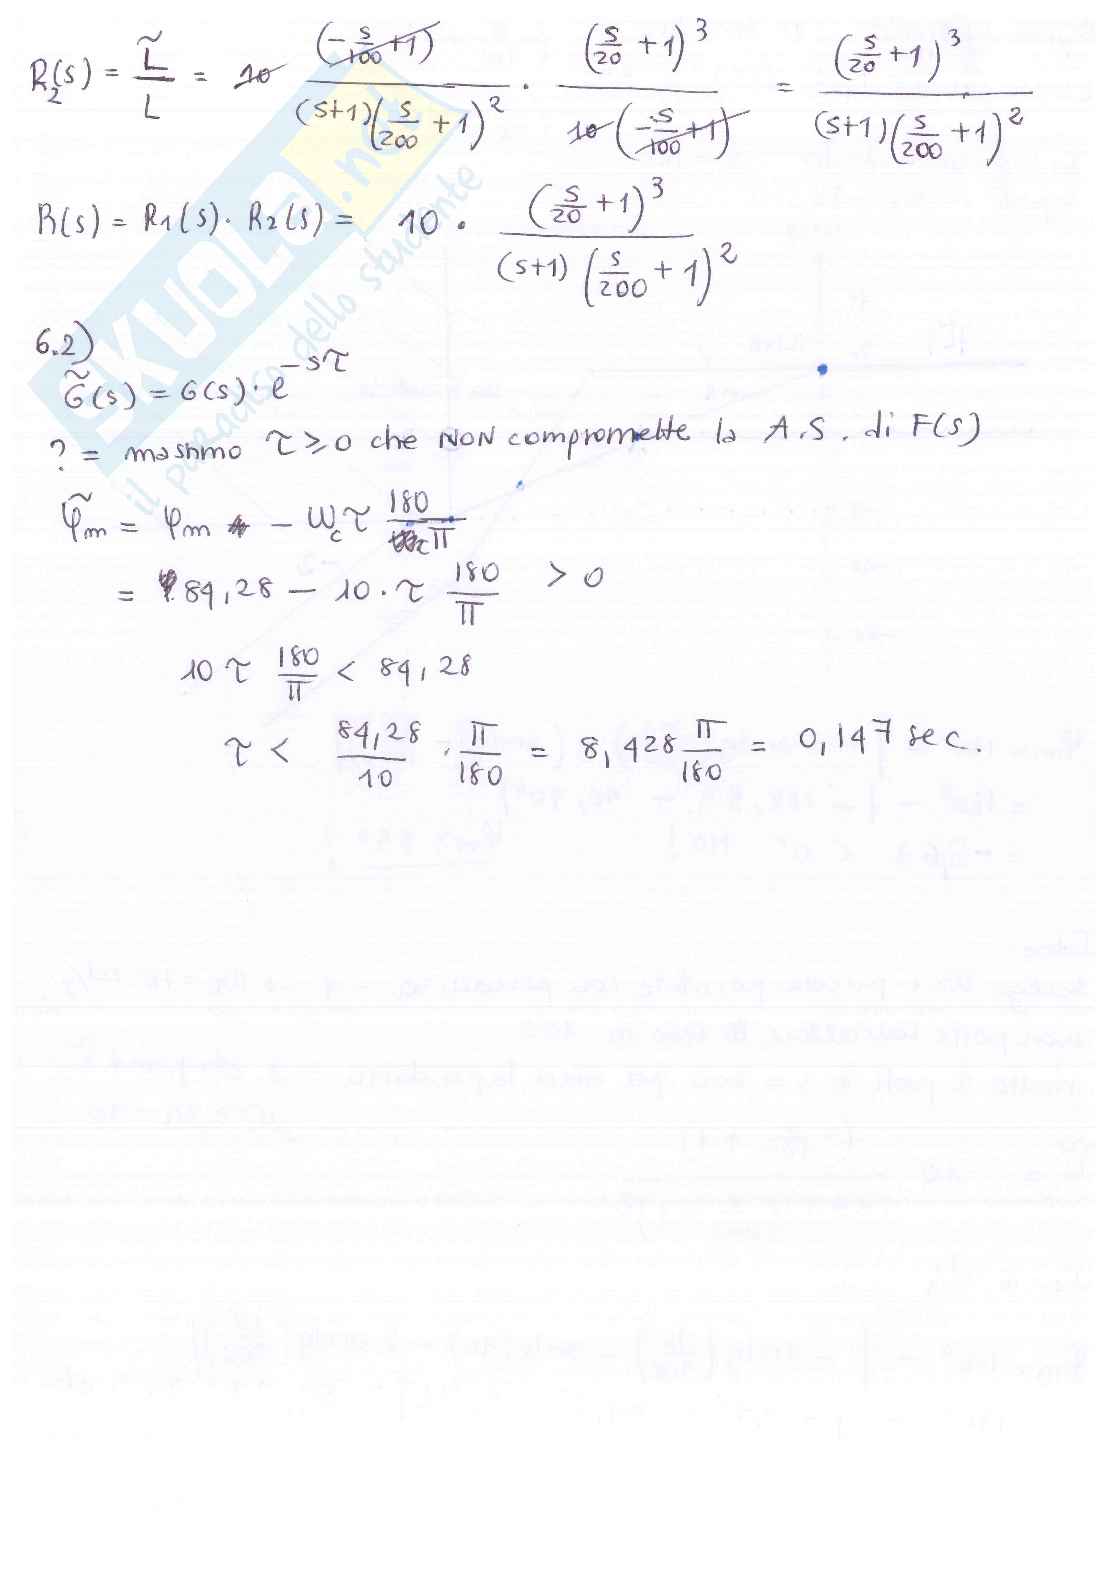 R₂(s) = L̃/L = 10 (-s/100 +1)/((s+1)(s/200 +1)²) · (s/20 +1)³/(10(-s/100 +1)) = (s/20 +1)³/((s+1)(s/200 +1)²)
R(s) = R1(s)· R2(s) = 10 · (s/20 +1)³/((s+1)(s/200 +1)²)
6.2)
G̃(s) = G(s)·e^(-sτ)
? = massimo τ ≥ 0 che NON compromette la A.S. di F(s)
φ̃m = φm - ωc τ 180/π
= 84,28 - 10 · τ 180/π > 0
10 τ 180/π < 84,28
τ < 84,28/10 · π/180 = 8,428 π/180 = 0,147 sec.
SKUOLA.net
il paradiso dello studente